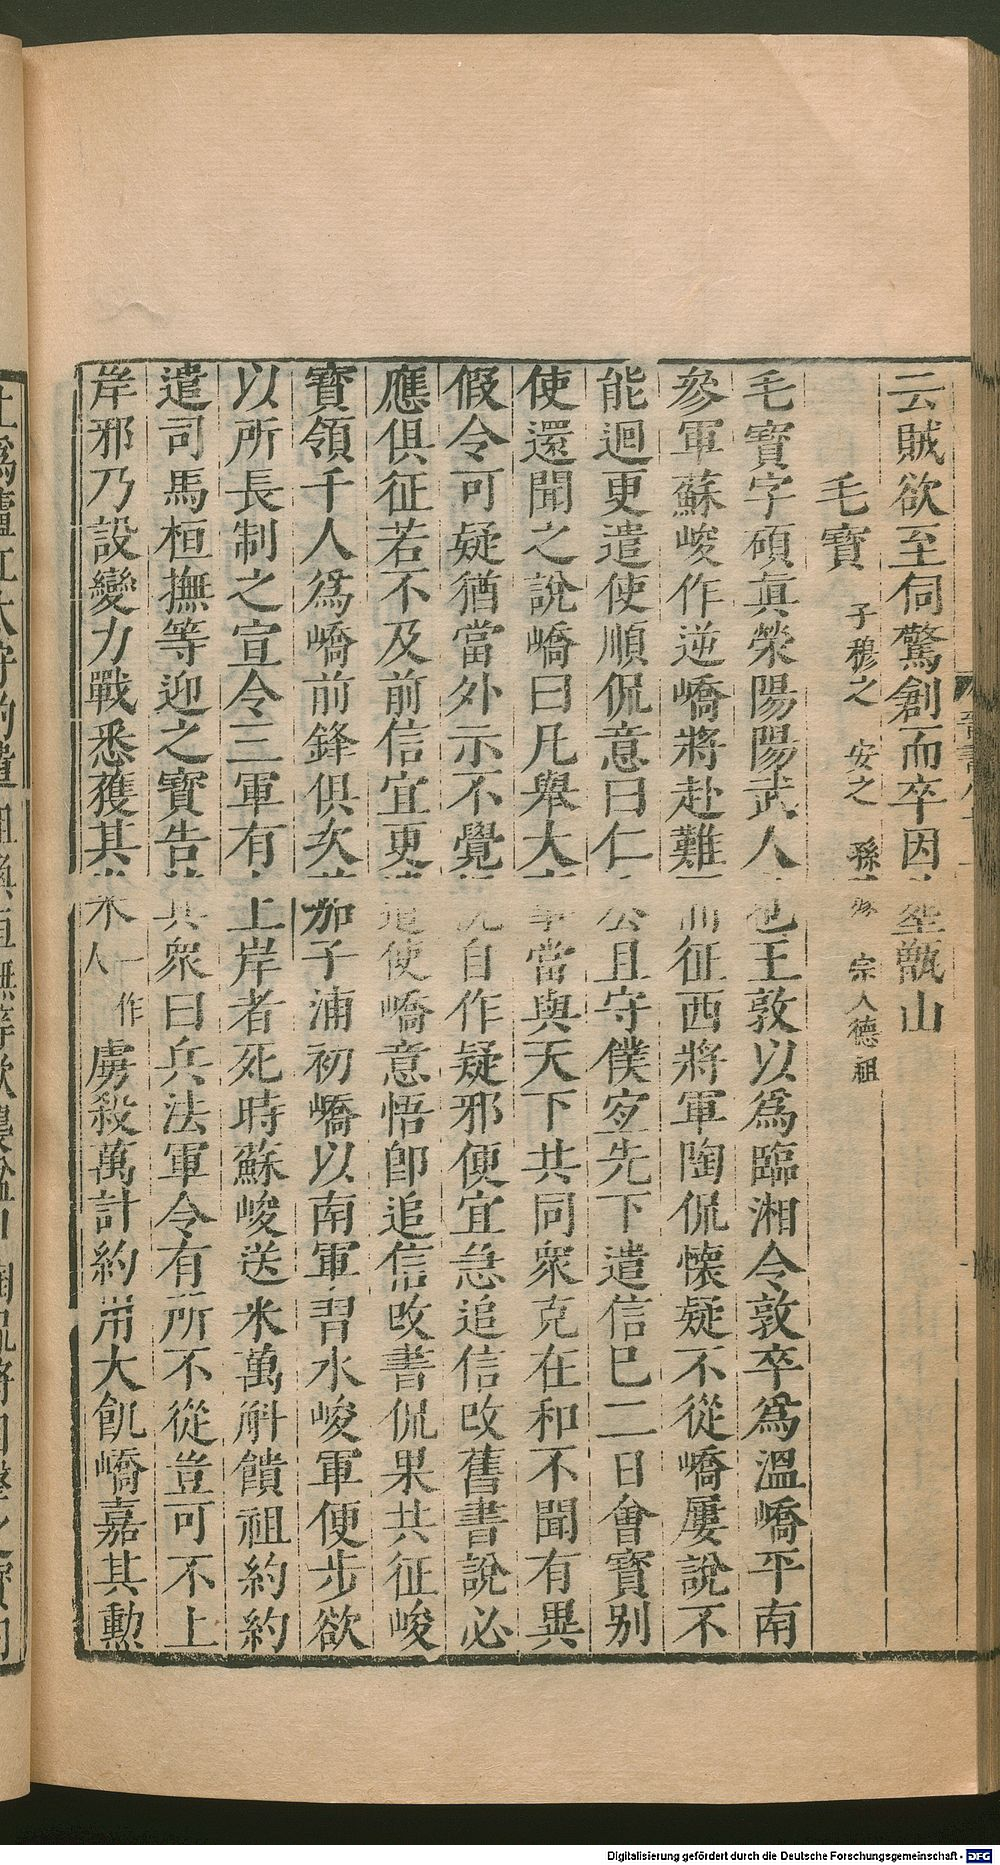 云賊欲至伺驚創而卒因葬甑山
毛寶 子穆之 安之 孫璩 宗人德祖
毛寶字碩真滎陽陽武人也王敦以為臨湘令敦卒為溫嶠平南
參軍蘇峻作逆嶠將赴難而征西將軍陶侃懷疑不從嶠屢說不
能迴更遣使順侃意曰仁公且守僕宜先下遣信已二日會寶別
使還聞之說嶠曰凡舉大事當與天下共同衆克在和不聞有異
假令可疑猶當外示不覺況自作疑邪便宜急追信改舊書說必
應俱征若不及前信宜更遣使嶠意悟卽追信改書侃果共征峻
寶領千人爲嶠前鋒俱次茄子浦初嶠以南軍習水峻軍便步欲
以所長制之宣令三軍有上岸者死時蘇峻送米萬斛饋祖約約
遣司馬桓撫等迎之寶告其衆曰兵法軍令有所不從豈可不上
岸邪乃設變力戰悉獲其米 一作人 虜殺萬計約用大飢嶠嘉其勲
Digitalisierung gefördert durch die Deutsche Forschungsgemeinschaft - DFG